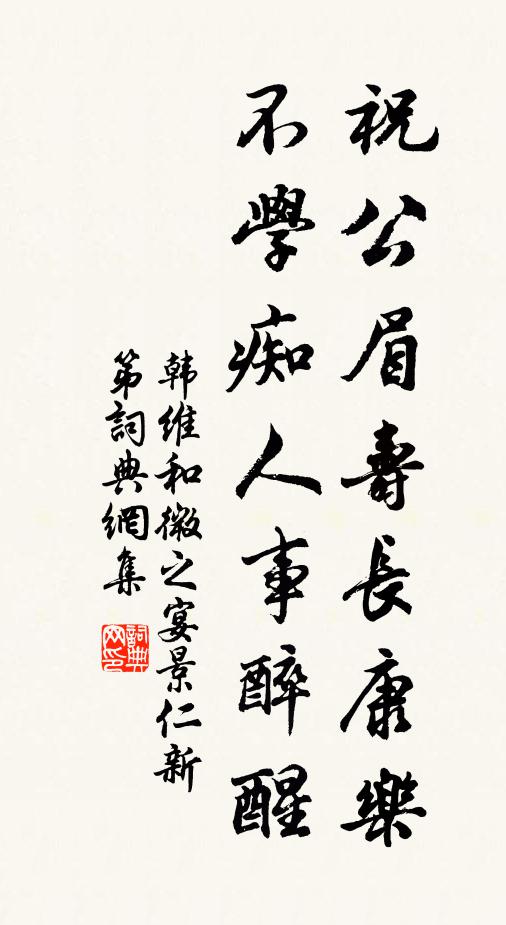 祝公眉壽長康樂
不學痴人事醉醒
韩维和微之宴景仁新
第詞典網集
詞典
网印